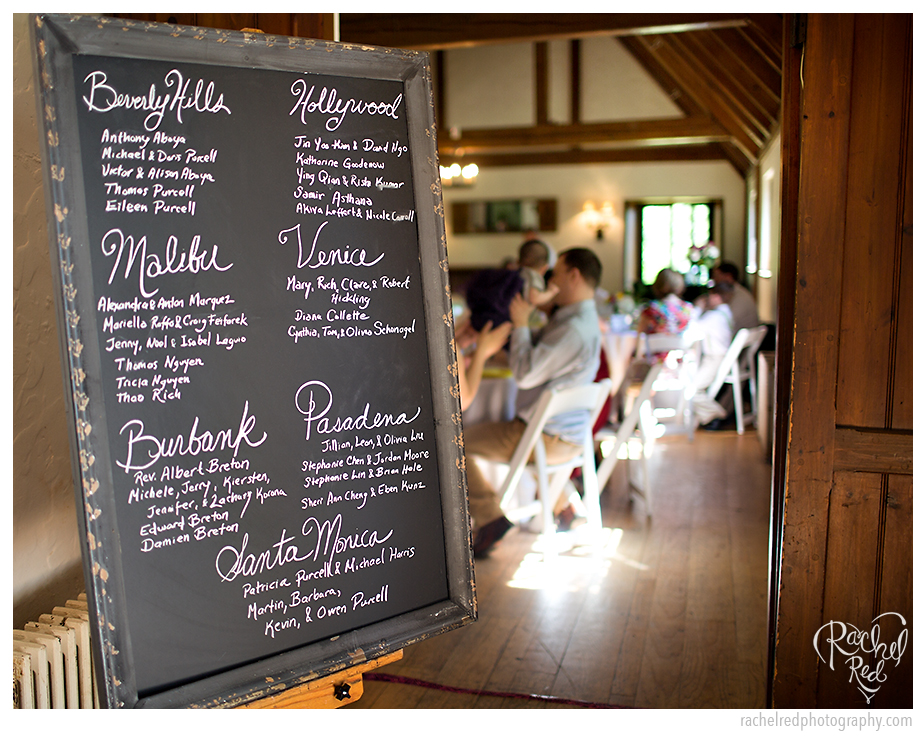 Beverly Hills
Anthony Abaya
Michael & Doris Purcell
Victor & Alison Abaya
Thomas Purcell
Eileen Purcell
Hollywood
Jin Yoo-Kim & David Ngo
Katharine Goodenow
Ying Qian & Kumar
Samir Asthana
Akiva Leffert & Nicole Carroll
Malibu
Alexandra & Anton Marquez
Mariella Ruffo & Craig
Jenny, Noel & Isabel Laguio
Thomas Nguyen
Tricia Nguyen
Thao Rich
Venice
Mary, Rich, Claire, & Robert
Hickling
Diana Collette
Cynthia, Tom, & Olivia Schonagel
Burbank
Rev. Albert Breton
Michele, Jerry, Kiersten,
Jenifer, & Zachary Korona
Edward Breton
Damien Breton
Pasadena
Jillian, Leon, & Olivia Liu
Stephanie Chen & Jordan Moore
Stephanie Lin & Brian Hole
Sheri Ann Cheng & Eben Kunz
Santa Monica
Patricia Purcell & Michael Harris
Martin, Barbara,
Kevin, & Owen Purcell
Rachel
Red
rachelredphotography.com